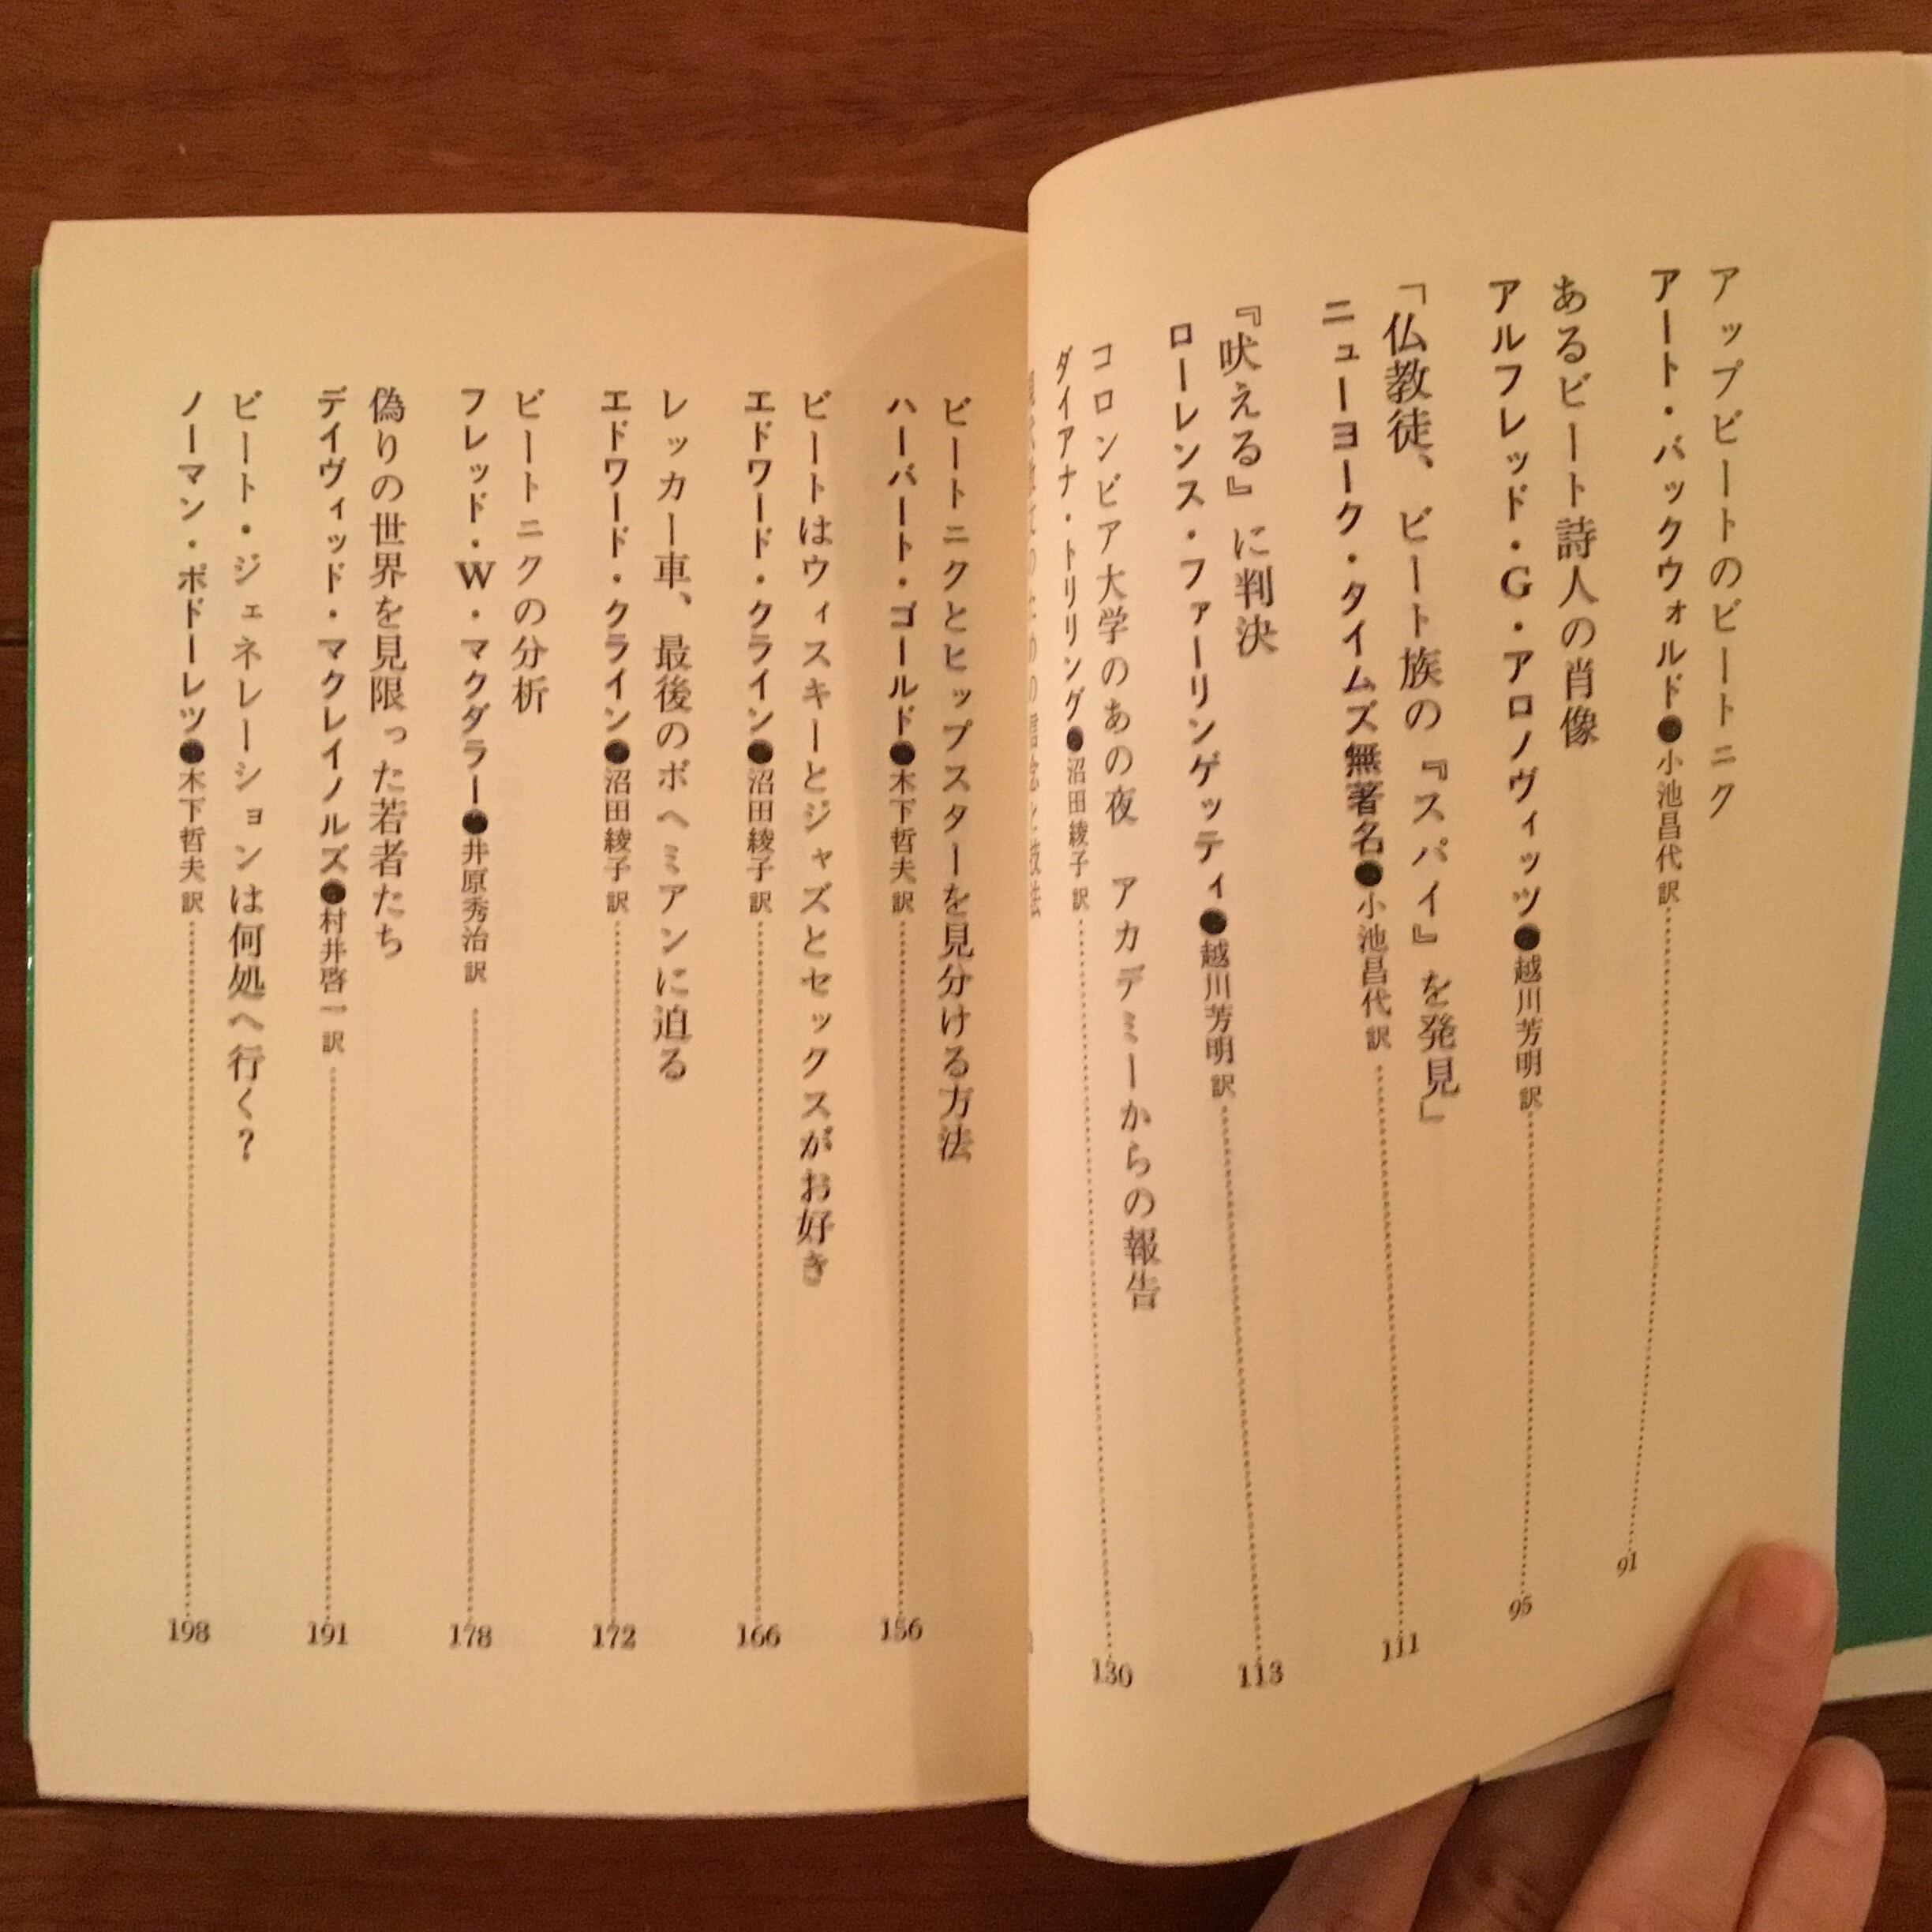 アップビートのビートニク
アート・バックウォルド●小池昌代 訳 91
あるビート詩人の肖像
アルフレッド・G・アロノヴィッツ●越川芳明 訳 95
「仏教徒、ビート族の『スパイ』を発見」
ニューヨーク・タイムズ無著名●小池昌代 訳 111
『吠える』に判決
ローレンス・ファーリンゲッティ●越川芳明 訳 113
コロンビア大学のあの夜 アカデミーからの報告
ダイアナ・トリリング●沼田綾子 訳 130
ビートニクとヒップスターを見分ける方法
ハーバート・ゴールド●木下哲夫 訳 156
ビートはウィスキーとジャズとセックスがお好き
エドワード・クライン●沼田綾子 訳 166
レッカー車、最後のボヘミアンに迫る
エドワード・クライン●沼田綾子 訳 172
ビートニクの分析
フレッド・W・マクダラー●井原秀治 訳 178
偽りの世界を見限った若者たち
デイヴィッド・マクレイノルズ●村井啓一 訳 191
ビート・ジェネレーションは何処へ行く?
ノーマン・ポドーレツ●木下哲夫 訳 198